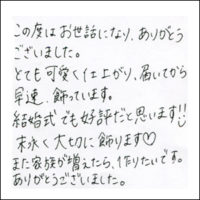 この度はお世話になり、ありがとう
ございました。
とても可愛く仕上がり、届いてから
早速、飾っています。
結婚式でも好評だと思います!!
末永く大切に飾ります♡
また家族が増えたら、作りたいです。
ありがとうございました。